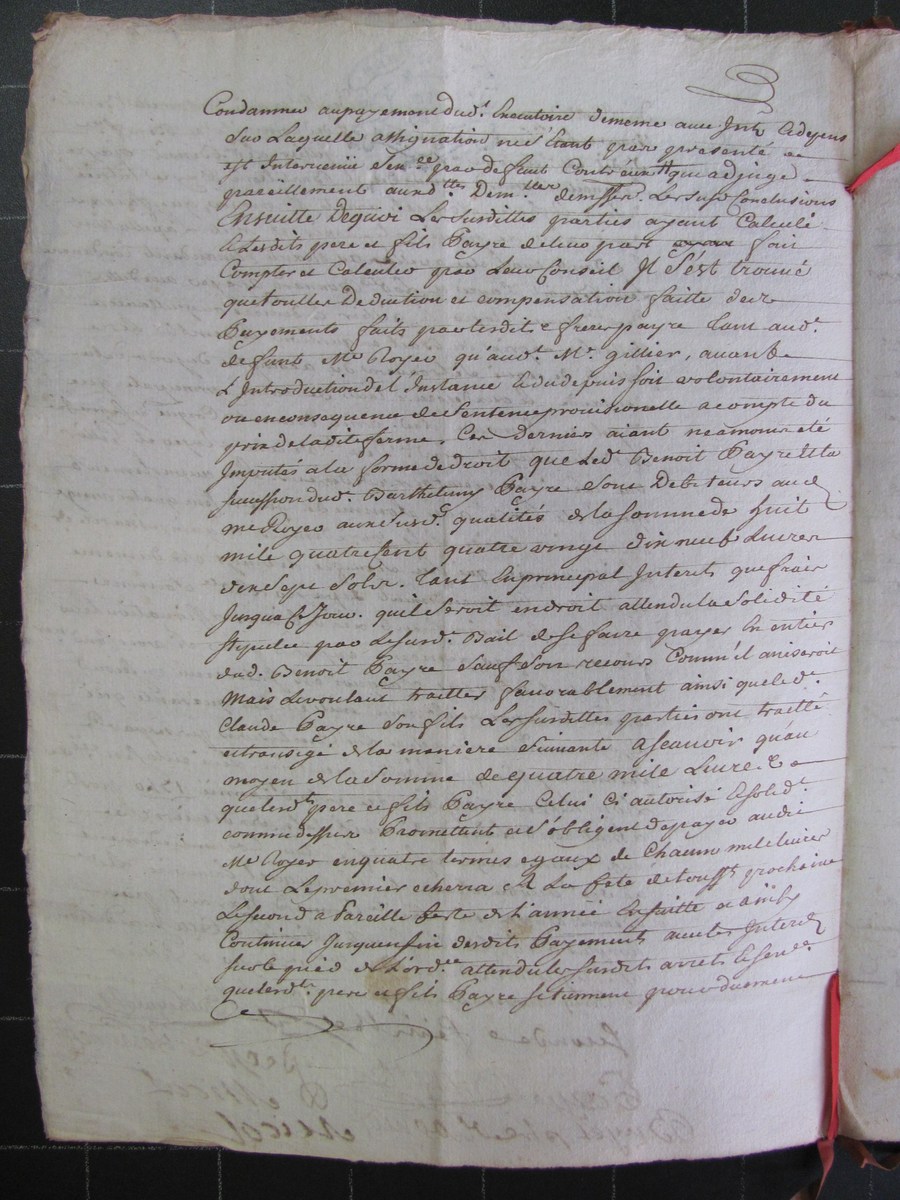 Condamner au payement dud.t Executoire de meme avec Int.ts & depens
Sur Laquelle assignation ne s'Etant pas presenté
est Intervenüe Sen.ce par defaut Contr'eux qui adjuge
pareillement auxd.ttes Dem.lles Les Susd Conclusions
Ensuitte Dequoi Les Susdittes parties ayant Calculé
& Lesdits pere et fils Payre de leur part fait
Compter et Calculer par Leur Conseil Il s'est trouvé
que touttes Deduction et compensation faitte des
Payements faits par lesdits freres payre tant aud.t
defunt Me Royer qu'aud.t Me. gillier, avant
L'Introduction de L'Instance & du depuis soit volontairement
ou en consequence de Sentence provisionelle a compte du
prix de la ditte ferme, Ces Derniers aiant neamoins eté
Imputés a la forme de droit que Led. Benoit Payre et la
succession dud. Barthelemy Payre Sont Debiteurs aud
me Royer aux Susd. qualités de la somme de huit
mile quatre cent quatre vingt dix neuf Livres
dix Sept Sols. tant En principal Interets que frais
Jusqua ce Jour. qu'il Seroit en droit attendu la Solidité
Stipulee par Le susd.t Bail de se faire payer En entier
dud. Benoit Payre Sauf Son recours Comm'il aviseroit
Mais Le voulant traitter favorablement ainsi que led.
Claude Payre Son fils Les susdittes parties ont traitté
et transigé de la maniere Suivante a scavoir qu'au
moyen de la Somme de quatre mile Livres
que lesd.ts pere et fils Payre Celui Ci autorisé & solid.t
comme dessus Promettent et s'obligent de payer audit
Me Royer en quatre termes egaux de Chacun mile livres
dont Le premier echerra a La fete de touss.ts prochaine
Le second a Pareille feste de L'année Ensuitte et ainsy
Continuer Jusqu'en fin desdits Payements avec les Interets
sur le pied de L'ord.ce attendu les Susdits arrets & Sen.ce
que lesd.ts pere et fils Payre se tiennent pour duement